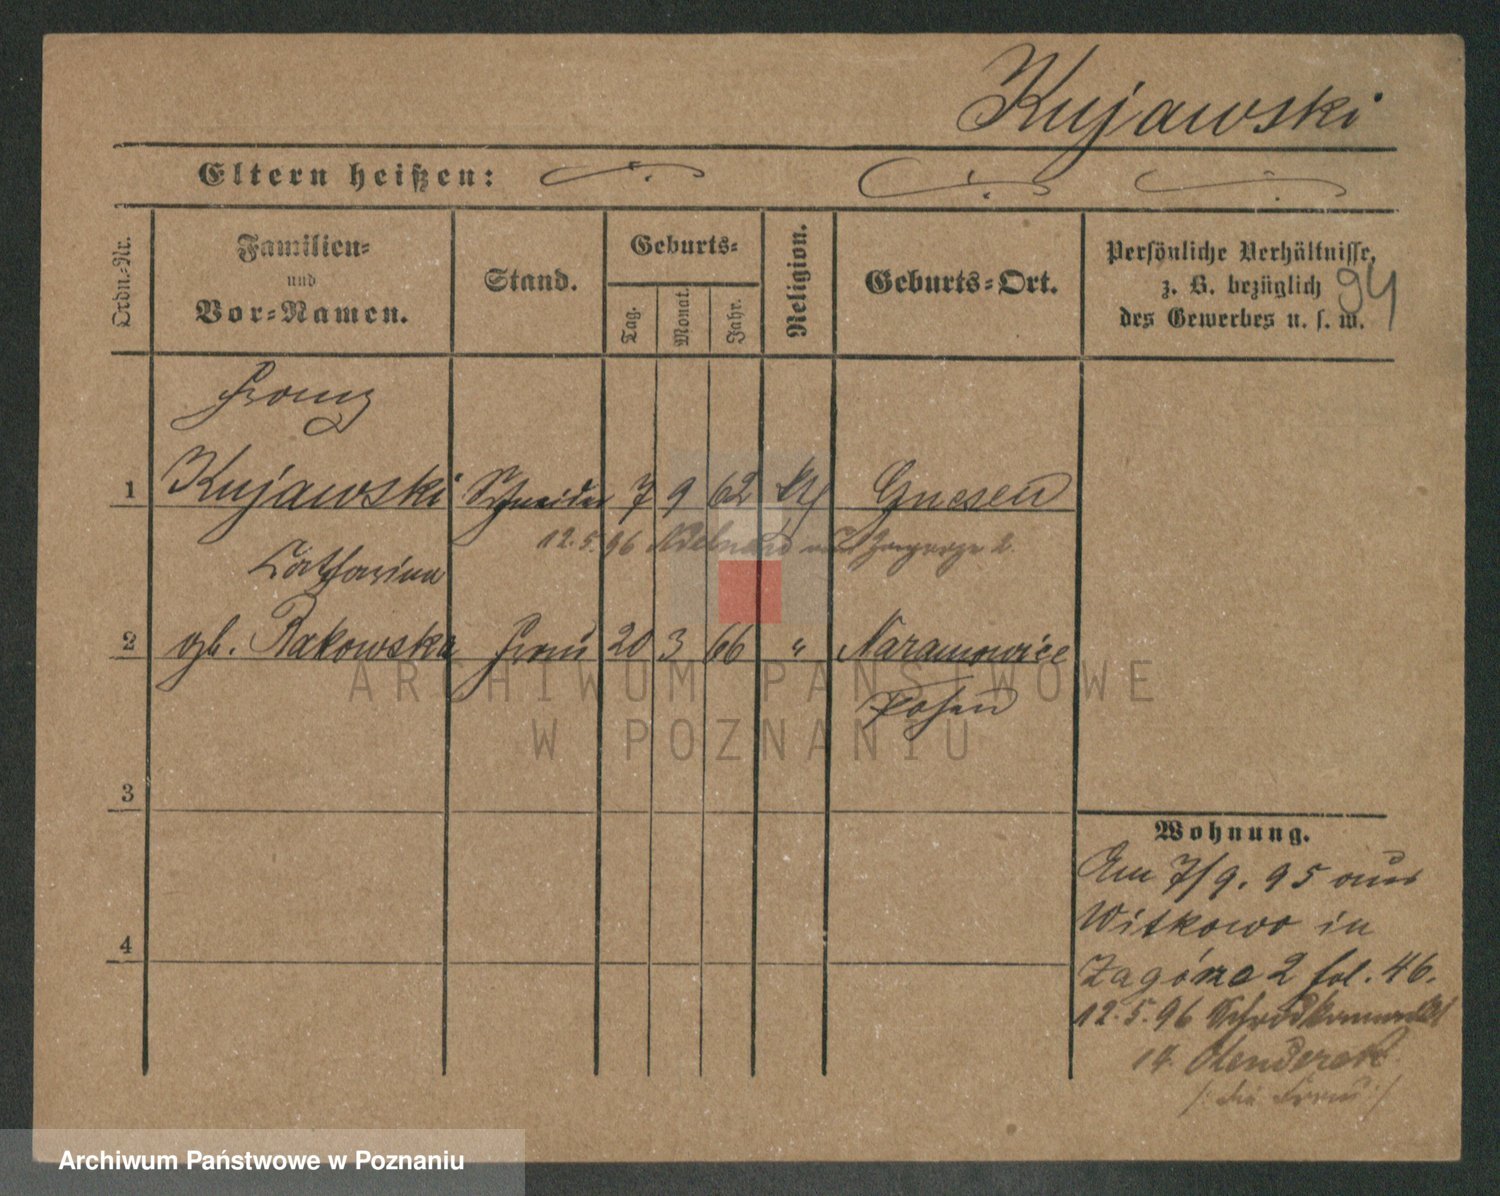 Kujawski
Eltern heißen:
Ordn.-Nr.
Familien-
und
Vor-Namen.
Stand.
Geburts-
Tag.
Monat.
Jahr.
Religion.
Geburts-Ort.
Persönliche Verhältnisse,
z. B. bezüglich
des Gewerbes u. s. w.
94
Franz
1 Kujawski Schneider 7 9 62 kth Gnesen
12.5.96 Adelnau
Catharina
2 gb. Rakowska Frau 20 3 66 " Naramowice
Posen
3
4
Wohnung.
Am 7/9. 95 aus
Witkowo in
Zagórze 2 fol. 46.
12.5.96 Schrodkamarkt
14
/: die Frau :/
ARCHIWUM PAŃSTWOWE
W POZNANIU
Archiwum Państwowe w Poznaniu